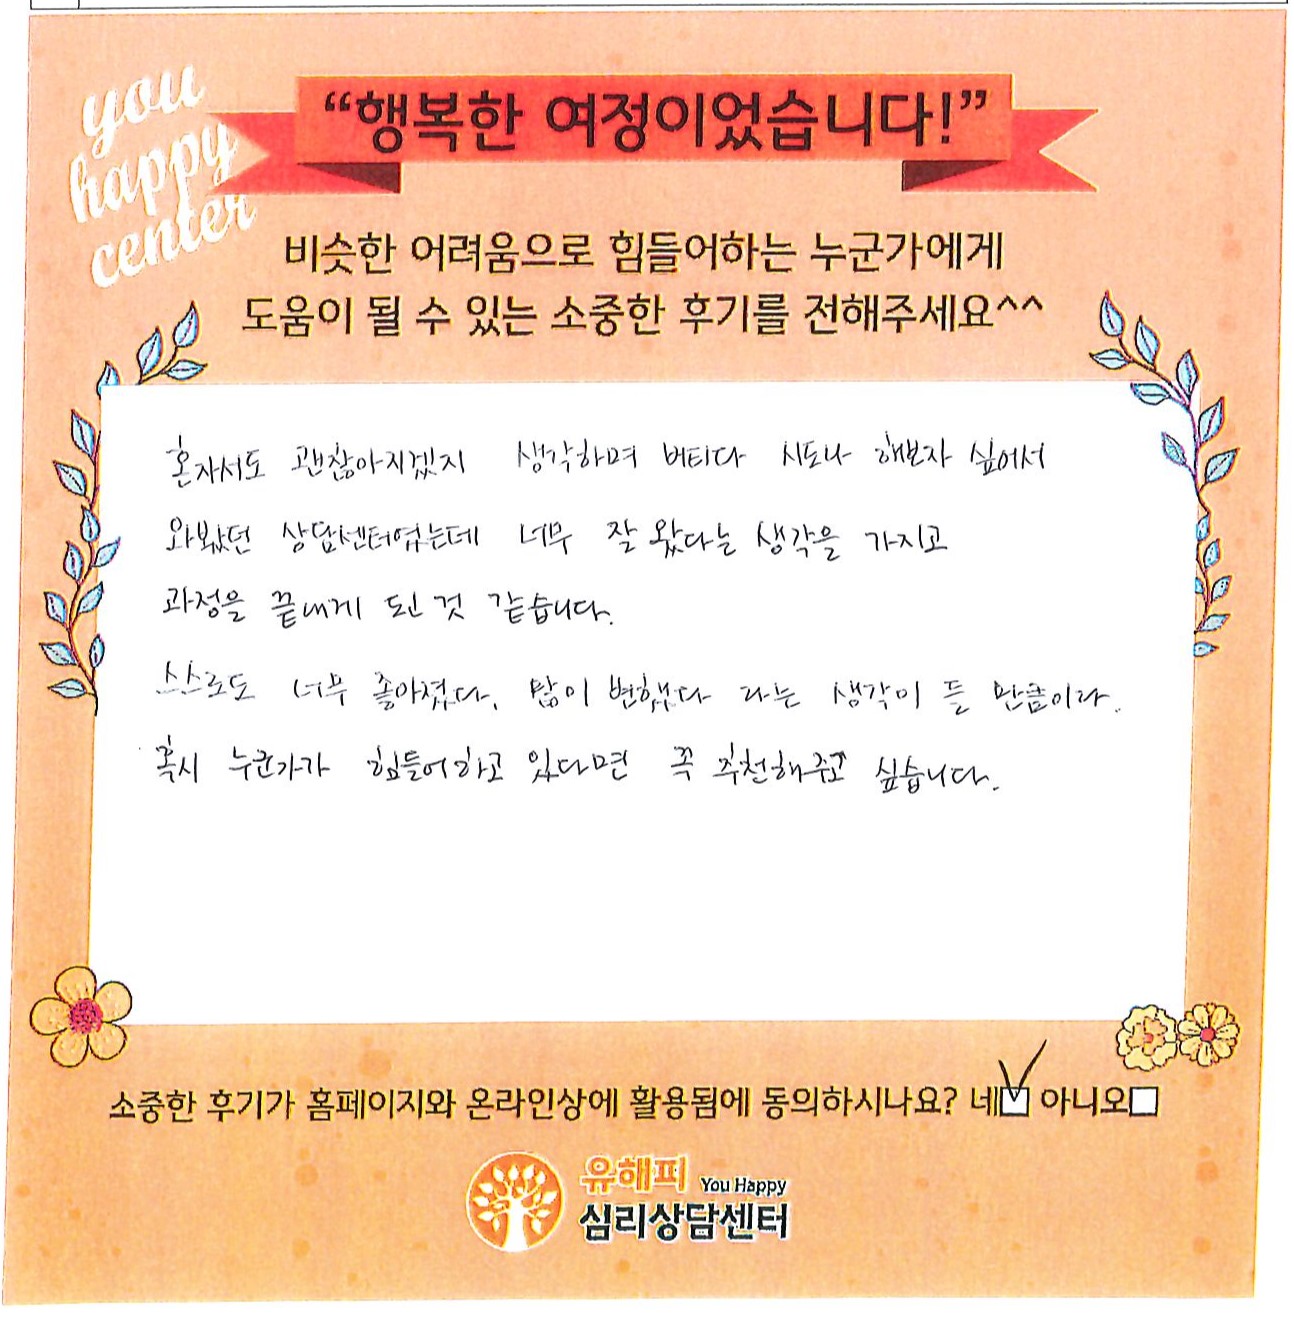 you
happy
center
“행복한 여정이었습니다!”
비슷한 어려움으로 힘들어하는 누군가에게
도움이 될 수 있는 소중한 후기를 전해주세요^^
혼자서도 괜찮아지겠지 생각하며 버티다 시도나 해보자 싶어서
와봤던 상담센터였는데 너무 잘 왔다는 생각을 가지고
과정을 끝내게 된 것 같습니다.
스스로도 너무 좋아졌다, 많이 변했다 라는 생각이 들 만큼이라.
혹시 누군가가 힘들어하고 있다면 꼭 추천해주고 싶습니다.
소중한 후기가 홈페이지와 온라인상에 활용됨에 동의하시나요? 네☑ 아니오☐
유해피 You Happy
심리상담센터